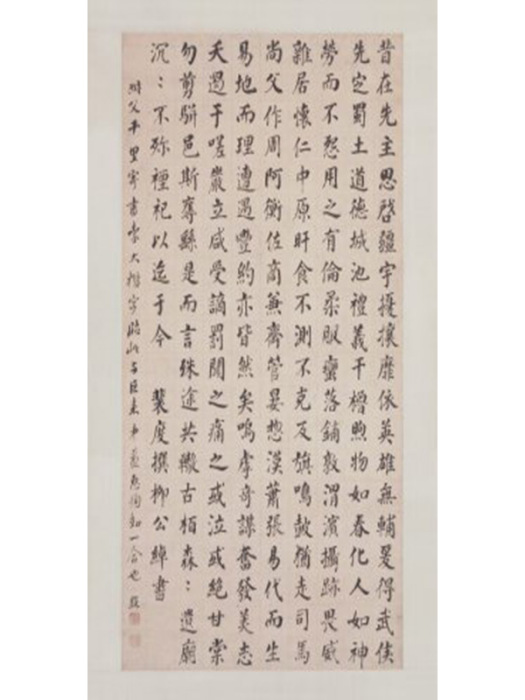 昔在先主思啓疆宇擾攘靡依英雄無輔爰得武侯
先定蜀土道德城池禮義干櫓煦物如春化人如神
勞而不怨用之有倫柔服蠻落鋪敦渭濱攝跡畏威
雜居懷仁中原旰食不測不克反旗鳴鼓猶走司馬
尚父作周阿衡佐商兼齊管晏揔漢蕭張易代而生
易地而理遭遇豐約亦皆然矣嗚虖奇謀奮發美志
夭遏于嗟嚴立咸受謫罰聞之痛之或泣或絕甘棠
勿剪駢邑斯奪繇是而言殊途共轍古栢森〻遺廟
沉〻不殄禋祀以迄于今 裴度撰柳公綽書